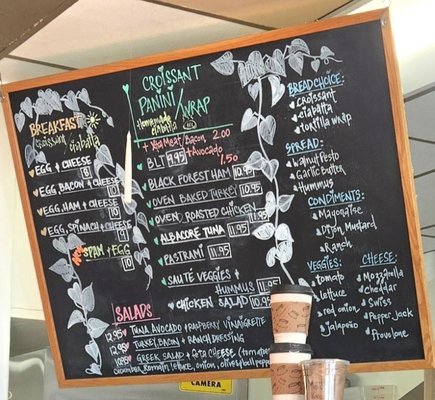 BREAKFAST
Croissant
ciabatta
EGG + CHEESE 8
EGG, BACON + CHEESE 10
EGG, HAM + CHEESE 10
EGG, SPINACH + CHEESE
SPAM + EGG 10
CROISSANT
PANINI /
WRAP
homemade
ciabatta
+ Vegi Meat/Bacon 2.00
+ Avocado 1.50
BLT 9.95
BLACK FOREST HAM 10.95
OVEN BAKED TURKEY 10.95
OVEN ROASTED CHICKEN 10.95
ALBACORE TUNA 11.95
PASTRAMI 11.95
SAUTÉ VEGGIES +
HUMMUS 11.95
CHICKEN SALAD 10.95
SALADS
TUNA, AVOCADO + RASPBERRY VINAIGRETTE
12.95 TURKEY, BACON + RANCH DRESSING
GREEK SALAD + Feta CHEESE (tomato,
cucumber, Romaine lettuce, onion, olives, bell pepper
BREAD CHOICE:
Croissant
ciabatta
tortilla wrap
SPREAD:
Walnut Pesto
Garlic Butter
Hummus
CONDIMENTS:
Mayonaise
Dijon Mustard
Ranch
VEGGIES:
tomato
lettuce
red onion
Jalapeño
CHEESE:
Mozzarella
cheddar
Swiss
Pepper Jack
Provolone
CAMERA